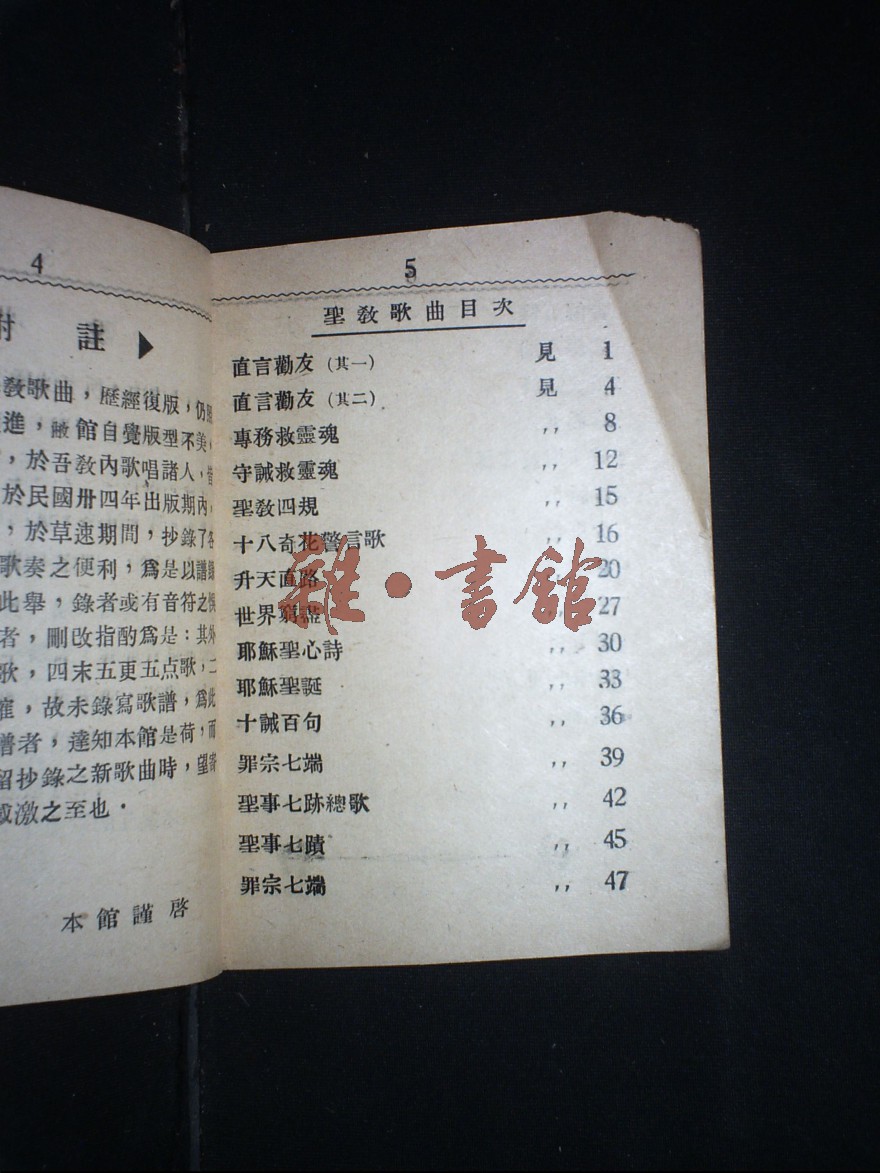 4
附 註
教歌曲，歷經復版，仍
進，敝館自覺版型不美，
，於吾教內歌唱諸人，
於民國卅四年出版期內，
，於草速期間，抄錄了各
歌奏之便利，爲是以譜錄
此舉，錄者或有音符之
者，刪改指酌爲是：其外
歌，四末五更五点歌，二
，故未錄寫歌譜，爲此
譜者，達知本館是荷，而
留抄錄之新歌曲時，望寄
感激之至也．
本館謹啓
5
聖教歌曲目次
直言勸友（其一） 見 1
直言勸友（其二） 見 4
專務救靈魂 ,, 8
守誡救靈魂 ,, 12
聖教四規 ,, 15
十八奇花警言歌 ,, 16
升天直路 ,, 20
世界窮盡 ,, 27
耶穌聖心詩 ,, 30
耶穌聖誕 ,, 33
十誡百句 ,, 36
罪宗七端 ,, 39
聖事七跡總歌 ,, 42
聖事七蹟 ,, 45
罪宗七端 ,, 47
雜·書館